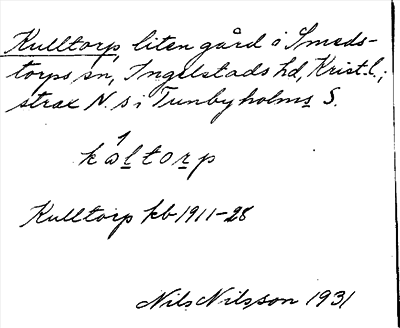 Kulltorp, liten gård i Smeds-
torps sn, Ingelstads hd, Krist. l.;
strax N. s i Tunbyholms S.
kåltorp
Kulltorp kb 1911-28
Nils Nilsson 1931